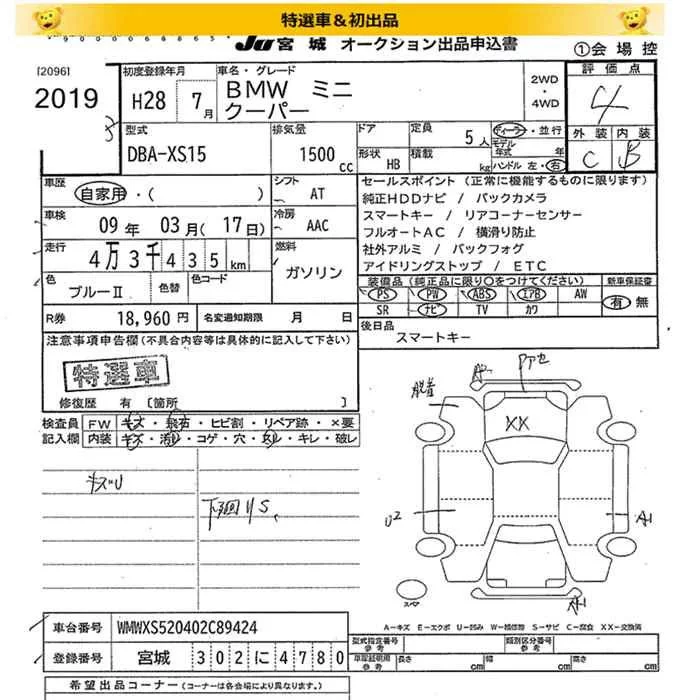 特選車＆初出品
JU 宮城 オークション出品申込書
①会場控
[2096]
2019
初度登録年月
H28 7月
車名・グレード
BMW ミニ
クーパー
2WD
・
4WD
評価点
4
外装 内装
C B
型式
DBA-XS15
排気量
1500cc
ドア
形状 HB
定員 5人
積載 kg
ディーラー・並行
モデル年式 年
ハンドル 左・右
車歴
自家用・( )
シフト
AT
車検
09年 03月(17日)
冷房
AAC
走行
4万3千435km
燃料
ガソリン
色
ブルーⅡ
色替
色コード
R券 18,960円
名変通知期限 月 日
セールスポイント (正常に機能するものに限ります)
純正HDDナビ / バックカメラ
スマートキー / リアコーナーセンサー
フルオートAC / 横滑り防止
社外アルミ / バックフォグ
アイドリングストップ / ETC
装備品(純正品に限り○をつけてください)
新車保証書
PS PW ABS エアB AW
SR ナビ TV カワ
有 無
後日品
スマートキー
注意事項申告欄(不具合内容等は具体的に記入して下さい)
特選車
修復歴 有 [箇所 ]
検査員
記入欄
FW キズ・飛石・ヒビ割・リペア跡・×要
内装 キズ・汚れ・コゲ・穴・ヌレ・キレ・破レ
キズU
下廻りS
XX
U2
A1
A1
スペア
A－キズ E－エクボ U－凹み W－補修跡 S－サビ C－腐食 XX－交換済
車台番号 WMWXS520402C89424
登録番号 宮城 302に4780
型式指定番号
参考
類別区分番号
参考
車庫証明用
参考
長さ cm
幅 cm
高さ cm
希望出品コーナー(コーナーは各会場により異なります。)